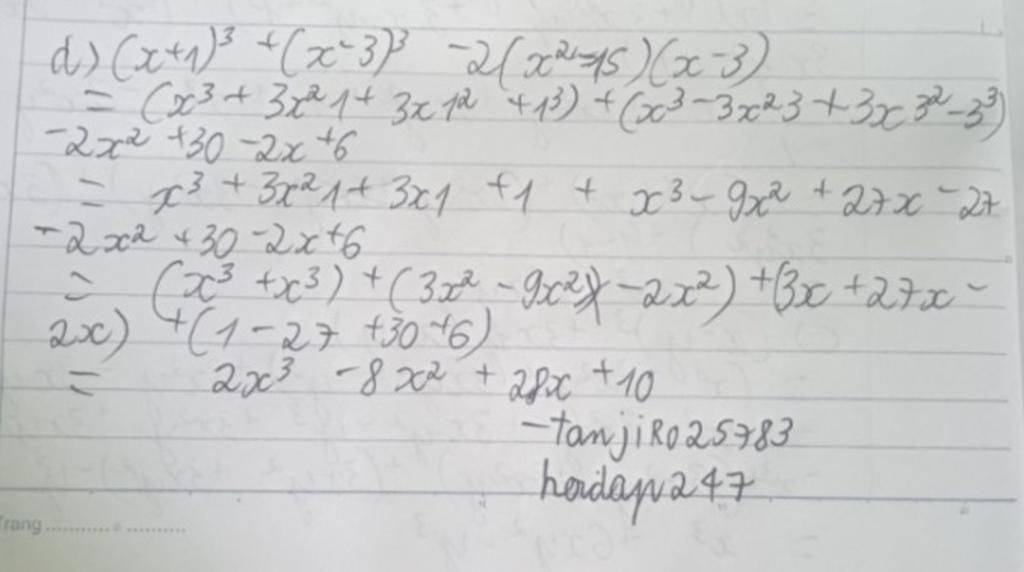 d) (x+1)³ + (x-3)³ - 2(x²-15)(x-3)
= (x³ + 3x²1 + 3x1² + 1³) + (x³ - 3x²3 + 3x3² - 3³)
-2x² + 30 - 2x + 6
= x³ + 3x²1 + 3x1 + 1 + x³ - 9x² + 27x - 27
-2x² + 30 - 2x + 6
= (x³ + x³) + (3x² - 9x² - 2x²) + (3x + 27x -
2x) + (1 - 27 + 30 + 6)
= 2x³ - 8x² + 28x + 10
-tanjiRo25783
hoidap247
Trang ........... = ...........